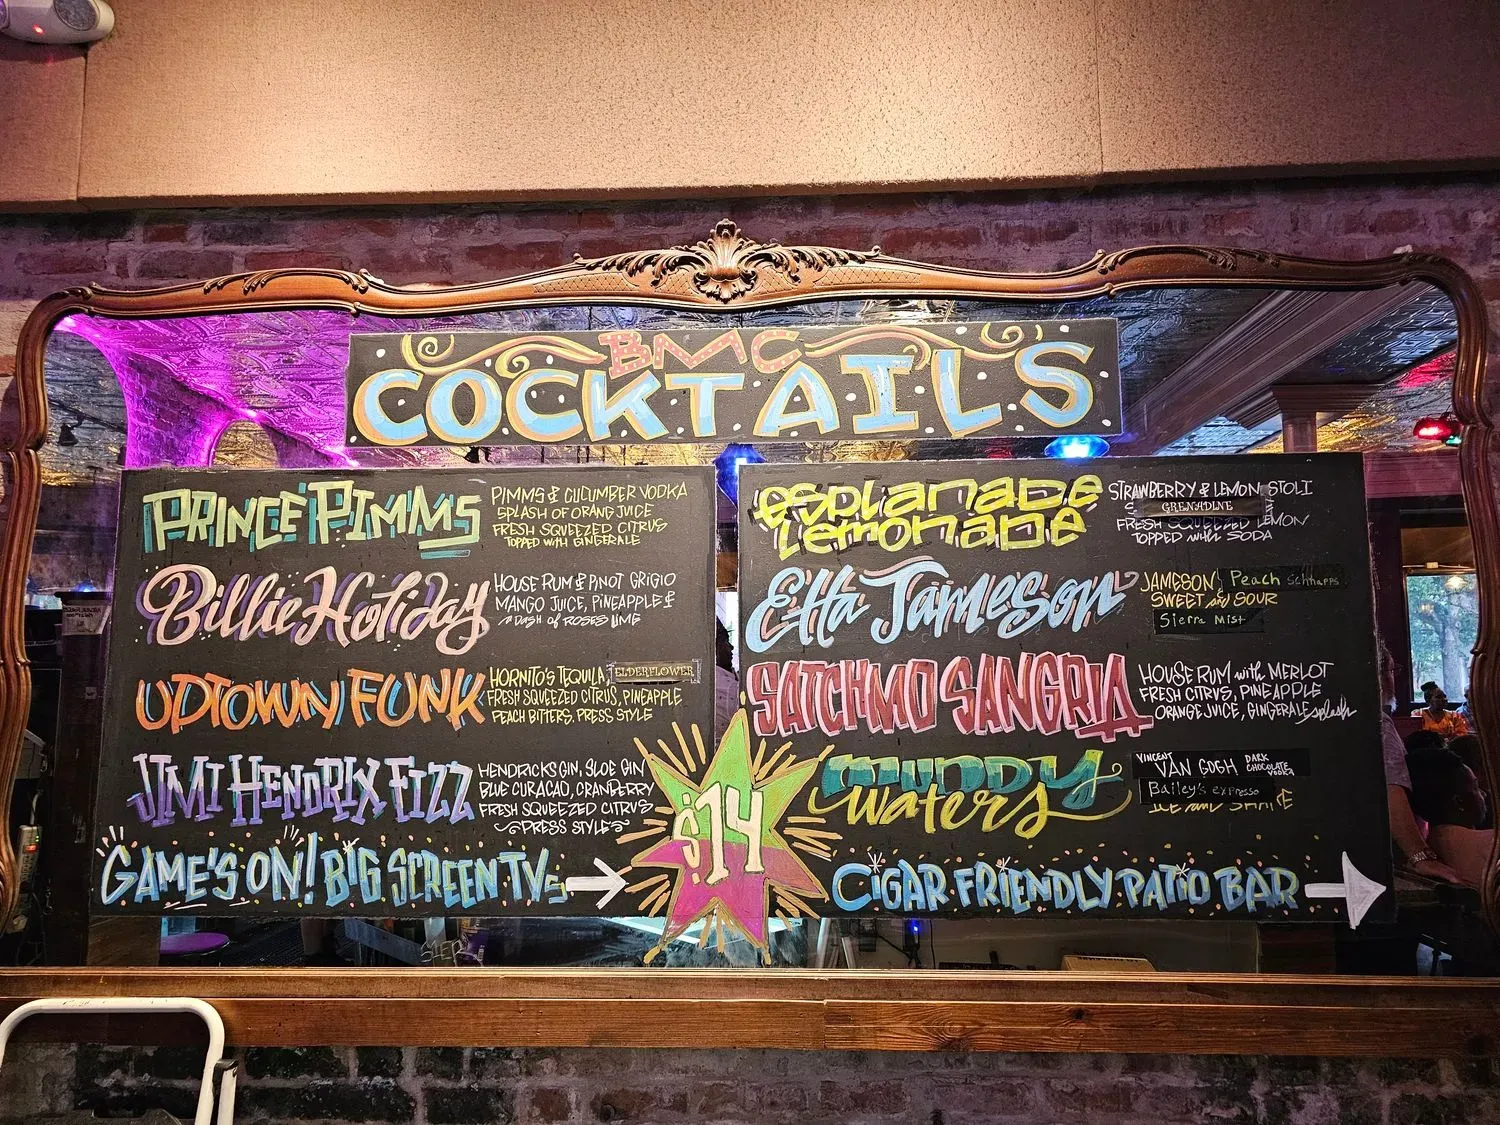 BMC
COCKTAILS
PRINCE PIMMS
PIMMS & CUCUMBER VODKA
SPLASH OF ORANG JUICE
FRESH SQUEEZED CITRUS
TOPPED WITH GINGERALE
Billie Holiday
HOUSE RUM & PINOT GRIGIO
MANGO JUICE, PINEAPPLE &
A DASH of ROSES LIME
UPTOWN FUNK
HORNITO'S TEQUILA, ELDERFLOWER
FRESH SQUEEZED CITRUS, PINEAPPLE
PEACH BITTERS, PRESS STYLE
JIMI HENDRIX FIZZ
HENDRICKS GIN, SLOE GIN
BLUE CURACAO, CRANBERRY
FRESH SQUEEZED CITRUS
PRESS STYLE
GAME'S ON! BIG SCREEN TVs
$14
esplanade
Lemonade
STRAWBERRY & LEMON STOLI
GRENADINE
FRESH SQUEEZED LEMON
TOPPED with SODA
Etta Jameson
JAMESON, Peach Schnapps
SWEET and SOUR
Sierra Mist
SATCHMO SANGRIA
HOUSE RUM with MERLOT
FRESH CITRUS, PINEAPPLE
ORANGE JUICE, GINGERALE splash
MUDDY
Waters
VINCENT VAN GOGH DARK CHOCOLATE VODKA
Bailey's expresso
ICE and SHAKE
CIGAR FRIENDLY PATIO BAR